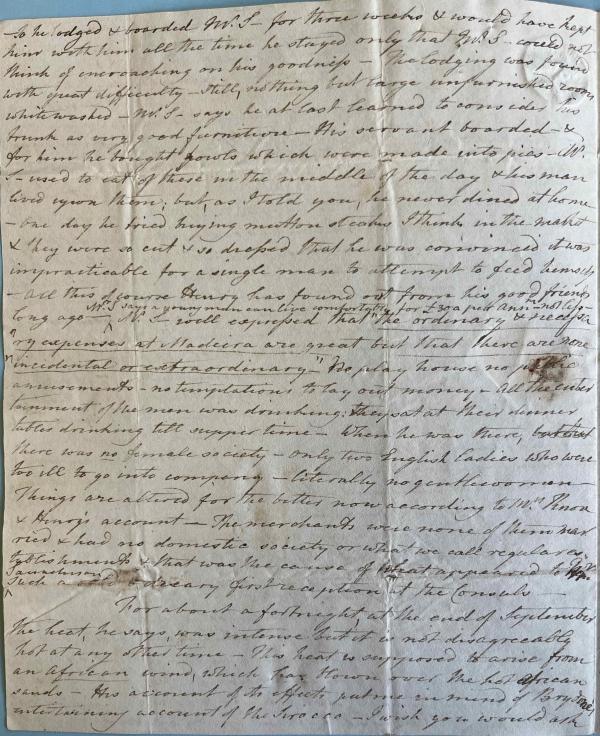 So he lodged & boarded Mr. S— for three weeks & would have kept
him with him all the time he stayed only that Mr. S— could not
think of encroaching on his goodness — The lodging was found
with great difficulty — Still, nothing but large unfurnished rooms
whitewashed — Mr. S— says he at last learned to consider his
trunk as very good furniture — His servant boarded — &
for him he bought fowls which were made into pies — Mr.
S— used to eat of these in the middle of the day & his man
lived upon them; but, as I told you, he never dined at home
— one day he tried buying mutton steaks I think, in the market
& they were so cut & so dressed that he was convinced it was
impracticable for a single man to attempt to feed himself
— All this of course Henry has found out from his good friends
Mr. S says a young man can live comfortably for £300 per Ann
long ago — Mr. S— well expressed that "the ordinary & necessa
ry expenses at Madeira are great but that there are none
"incidental or extraordinary—" No play house no public
amusements — no temptations to lay out money — All the enter
tainment of the men was drinking: They sat at their dinner
tables drinking till supper time — When he was there,
there was no female society — only two English Ladies who were
too ill to go into company — literally no gentlewoman —
Things are altered for the better now according to Mrs.
& Henry's account — The merchants were none of them mar
ried & had no domestic society or what we call regular es
tablishments & that was the cause of what appeared to
such a dreary first reception at the Consuls —
For about a fortnight, at the end of September
the heat, he says, was intense but it is not disagreeably
hot at any other time — This heat is supposed to arise from
an African wind, which has blown over the hot African
sands — His account of its effects put me in mind of Brydone's
entertaining account of the Sirocco — I wish you would ask